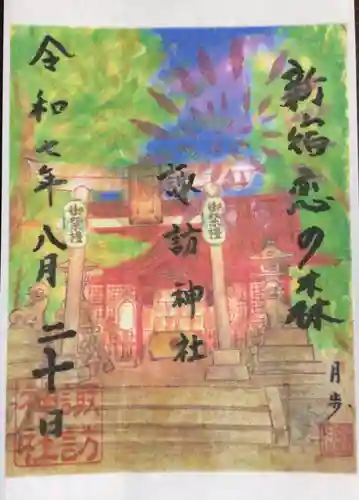 新宿恋の森
諏訪神社
令和七年八月二十日
月歩
御祭禮
御祭禮
諏訪
神社